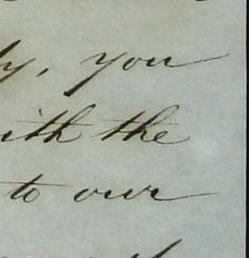 y, you
ith the
to our